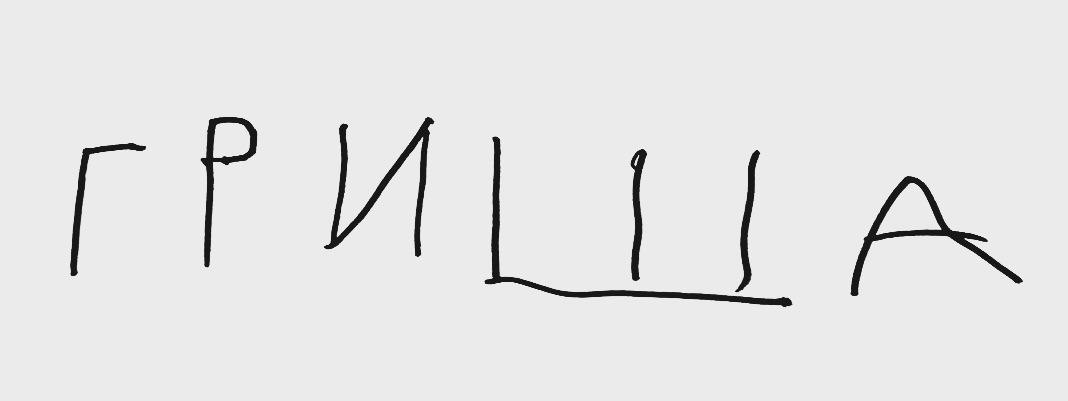 ГРИША